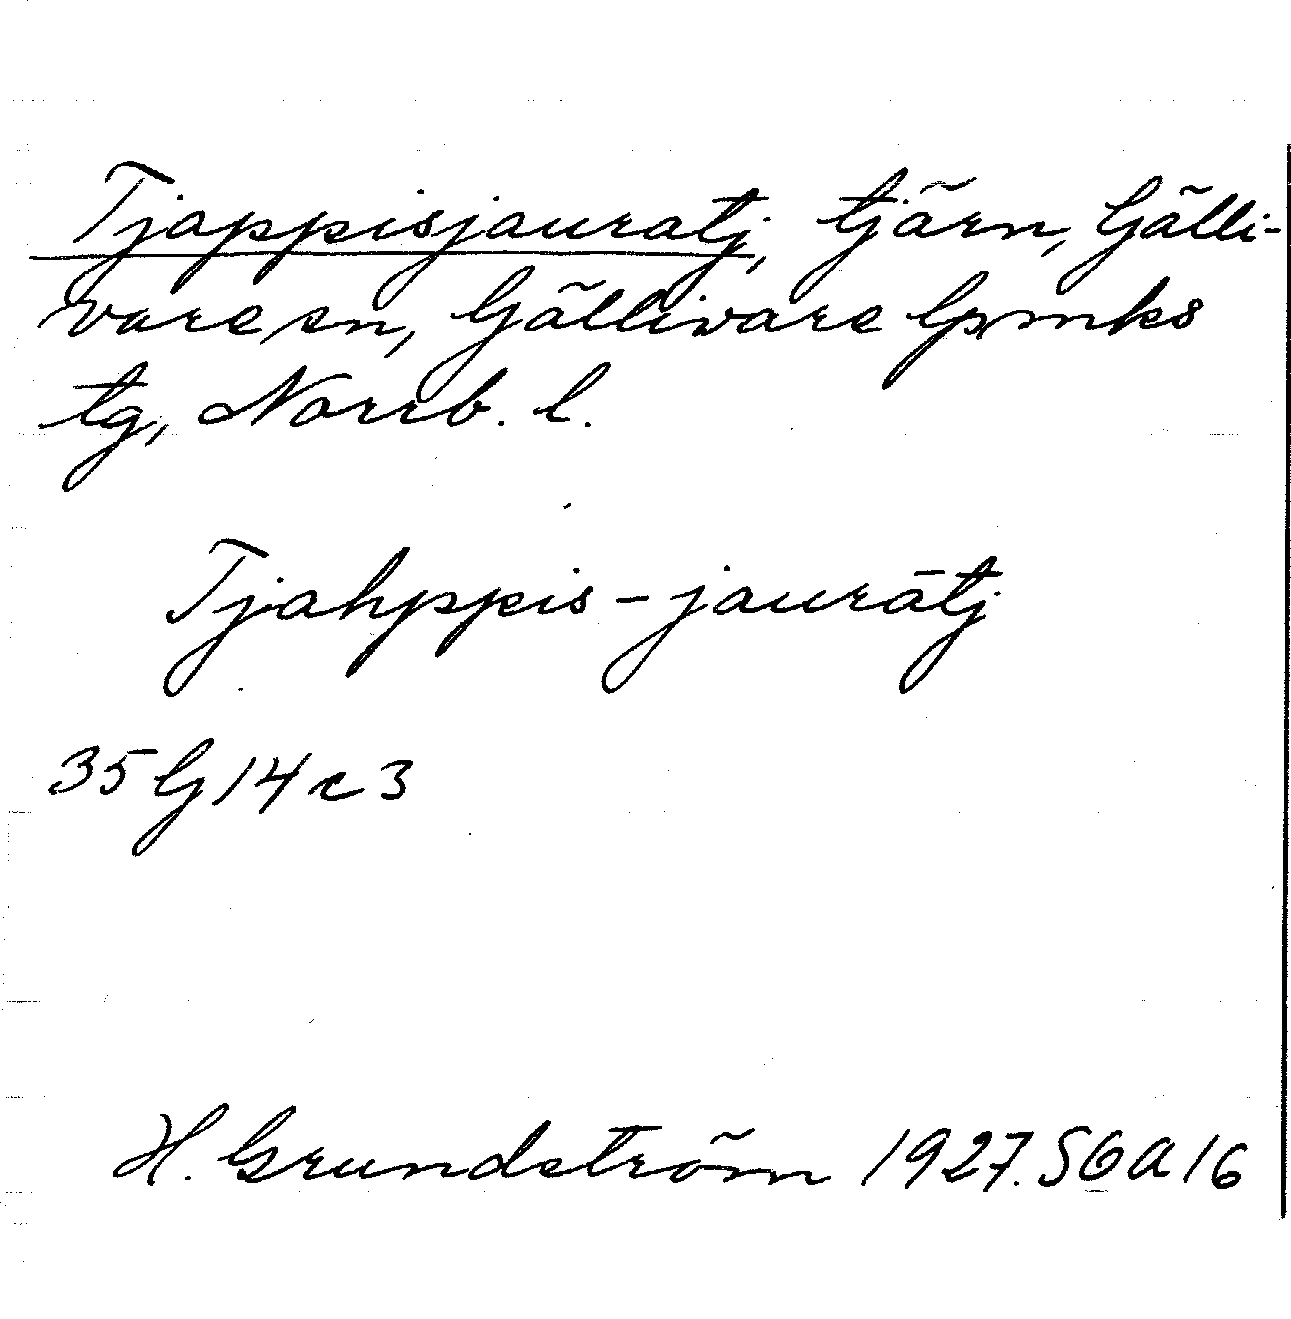 Tjappisjauratj, tjärn, Gälli-
vare sn, Gällivare lpmks
tg, Norrb. l.
Tjahppis-jaurātj
35 G 14 c 3
H. Grundström 1927. SOA 16